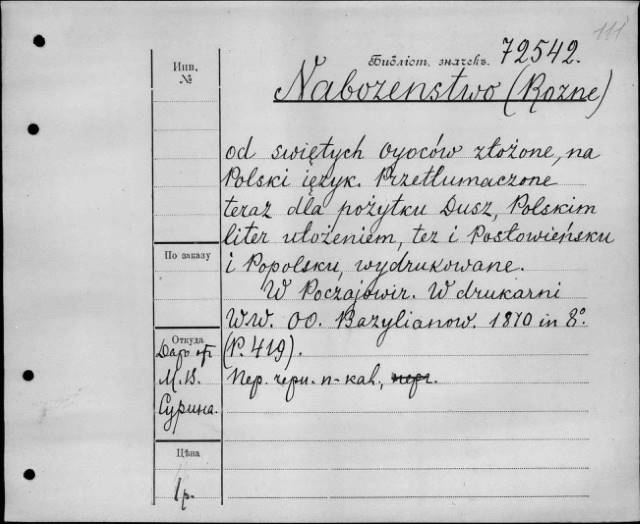 111
Библіот. значекъ. 72542.
Инв.
№
Nabozenstwo (Rozne)
od swiętych oycόw złożone, na
Polski ięzyk. Przetłumaczone
teraz dla pożytku Dusz, Polskim
liter ułożeniem, tez i Posłowieńsku
По заказу
i Popolsku, wydrukowane.
W Poczajowir. W drukarni
WW. OO. Bazylianow. 1870 in 8°.
Откуда
(P. 419).
Даръ отъ
М. В.
Пер. черн. п-каl,
Сурина.
Цѣна
1 р.